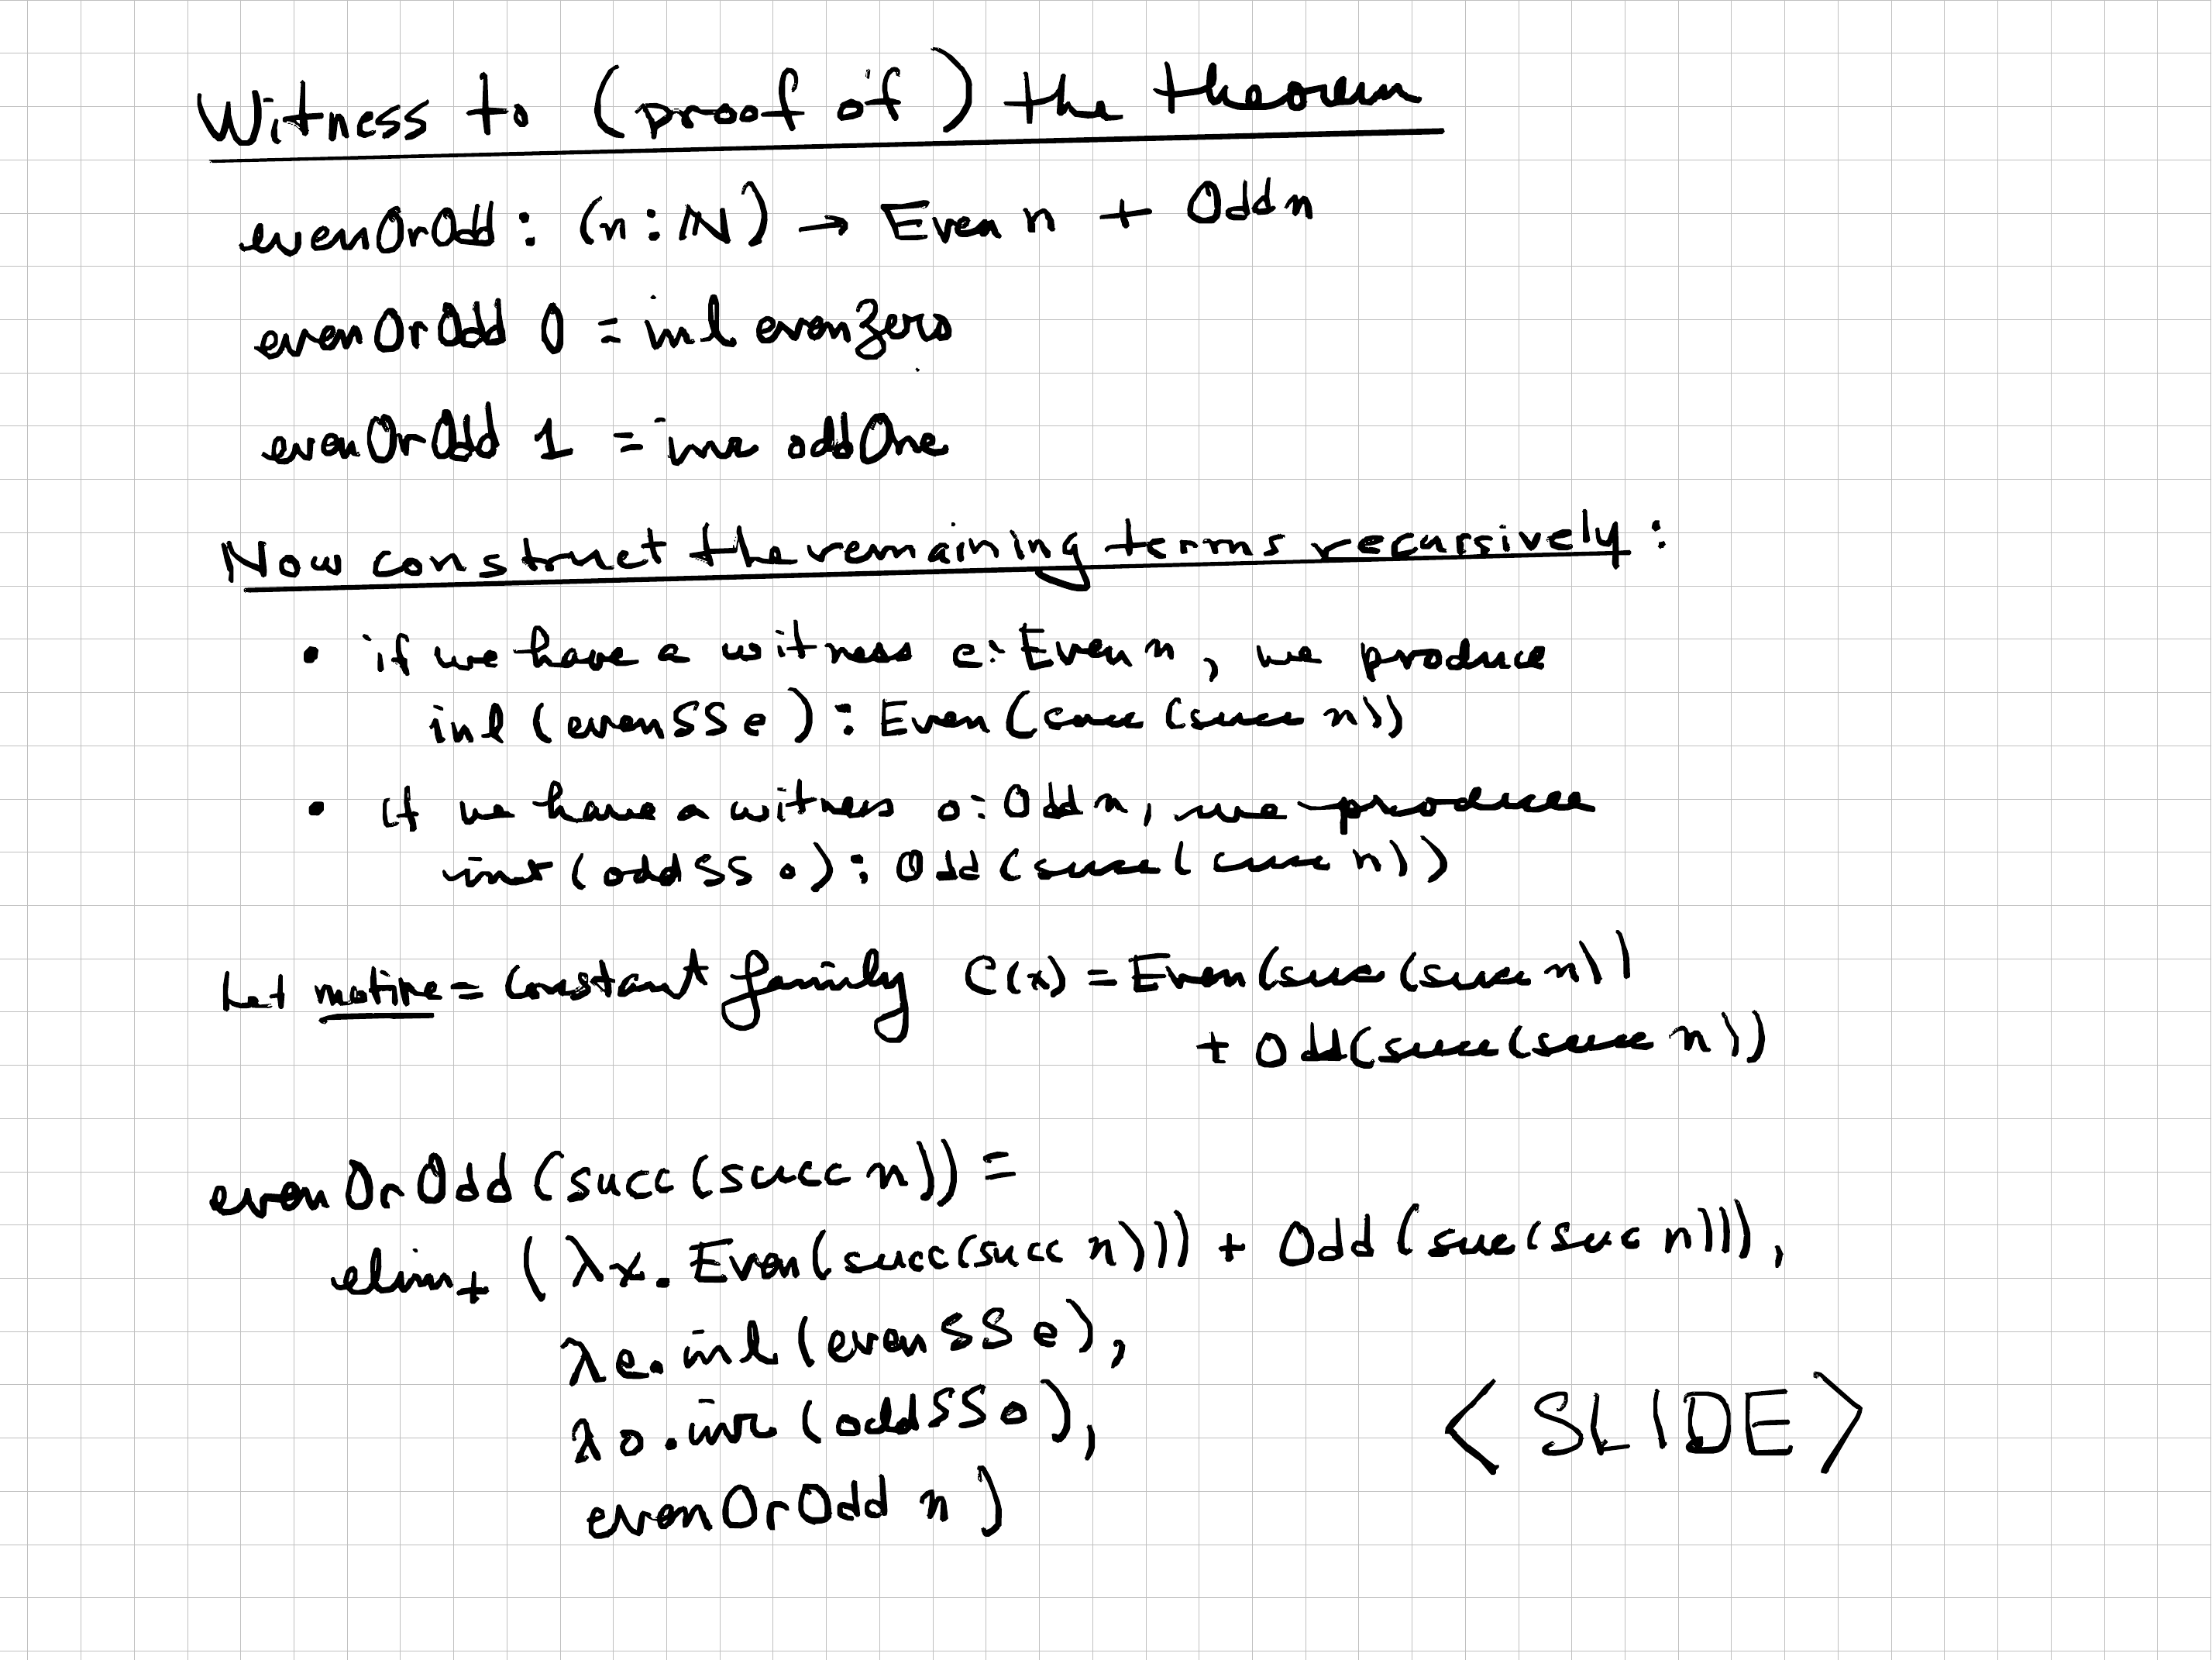 Witness to (proof of) the theorem
evenOrOdd : (n : ℕ) → Even n + Odd n
evenOrOdd 0 = inl evenZero
evenOrOdd 1 = inr oddOne
Now construct the remaining terms recursively:
• if we have a witness e: Even n, we produce
inl (evenSS e) : Even (succ (succ n))
• If we have a witness o: Odd n, we produce
inr (oddSS o) : Odd (succ (succ n))
Let motive = constant family C(x) = Even (succ (succ n))
+ Odd (succ (succ n))
evenOrOdd (succ (succ n)) =
elim₊ (λx. Even (succ (succ n))) + Odd (suc (suc n))),
λe. inl (evenSS e),
λo. inr (oddSS o),
evenOrOdd n)
<SLIDE>